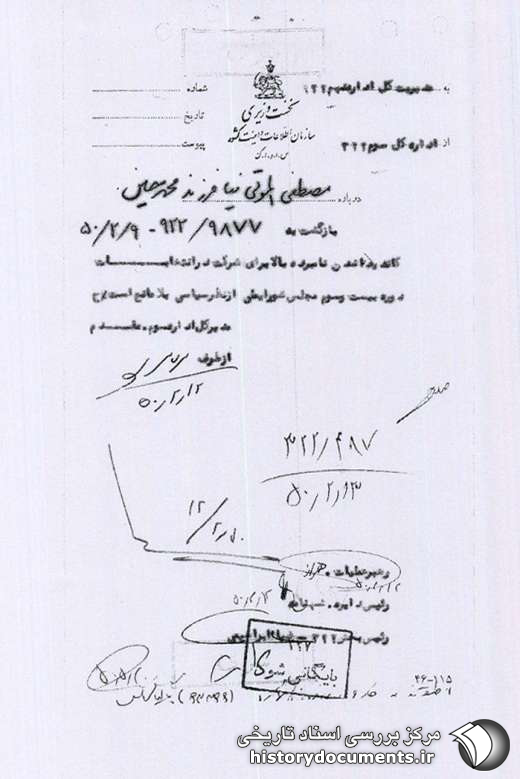 به مدیریت کل اداره نهم ۹۲۲
شماره
نخست وزیری
تاریخ
سازمان اطلاعات و امنیت کشور
س.ا.و.ا.ک
از اداره کل سوم ۳۲۲
پیوست
درباره مصطفی الموتی نیا فرزند محمدحسین
بازگشت به ۹۸۷۷/۹۲۲ - ۵۰/۲/۹
کاندید شدن نامبرده بالا برای شرکت در انتخابات
دوره بیست و سوم مجلس شورایملی از نظر سیاسی بلامانع است ح
مدیر کل اداره سوم . مقدم
از طرف
۵۰/۲/۱۲
۳۲۲/۴۸۷
۵۰/۲/۱۳
۱۲/۲/۵۰
رهبر عملیات .
رئیس دایره .
رئیس بخش ۳۲۲
بایگانی شود
۴۶-۱۱۵
مرکز بررسی اسناد تاریخی
historydocuments.ir